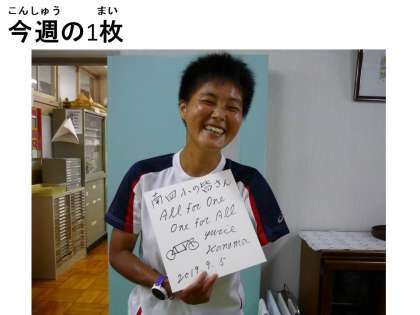 こんしゅう まい
今週の1枚
南四小の皆さん
All for One
One for All
yurie
kanuma
2019.9.5